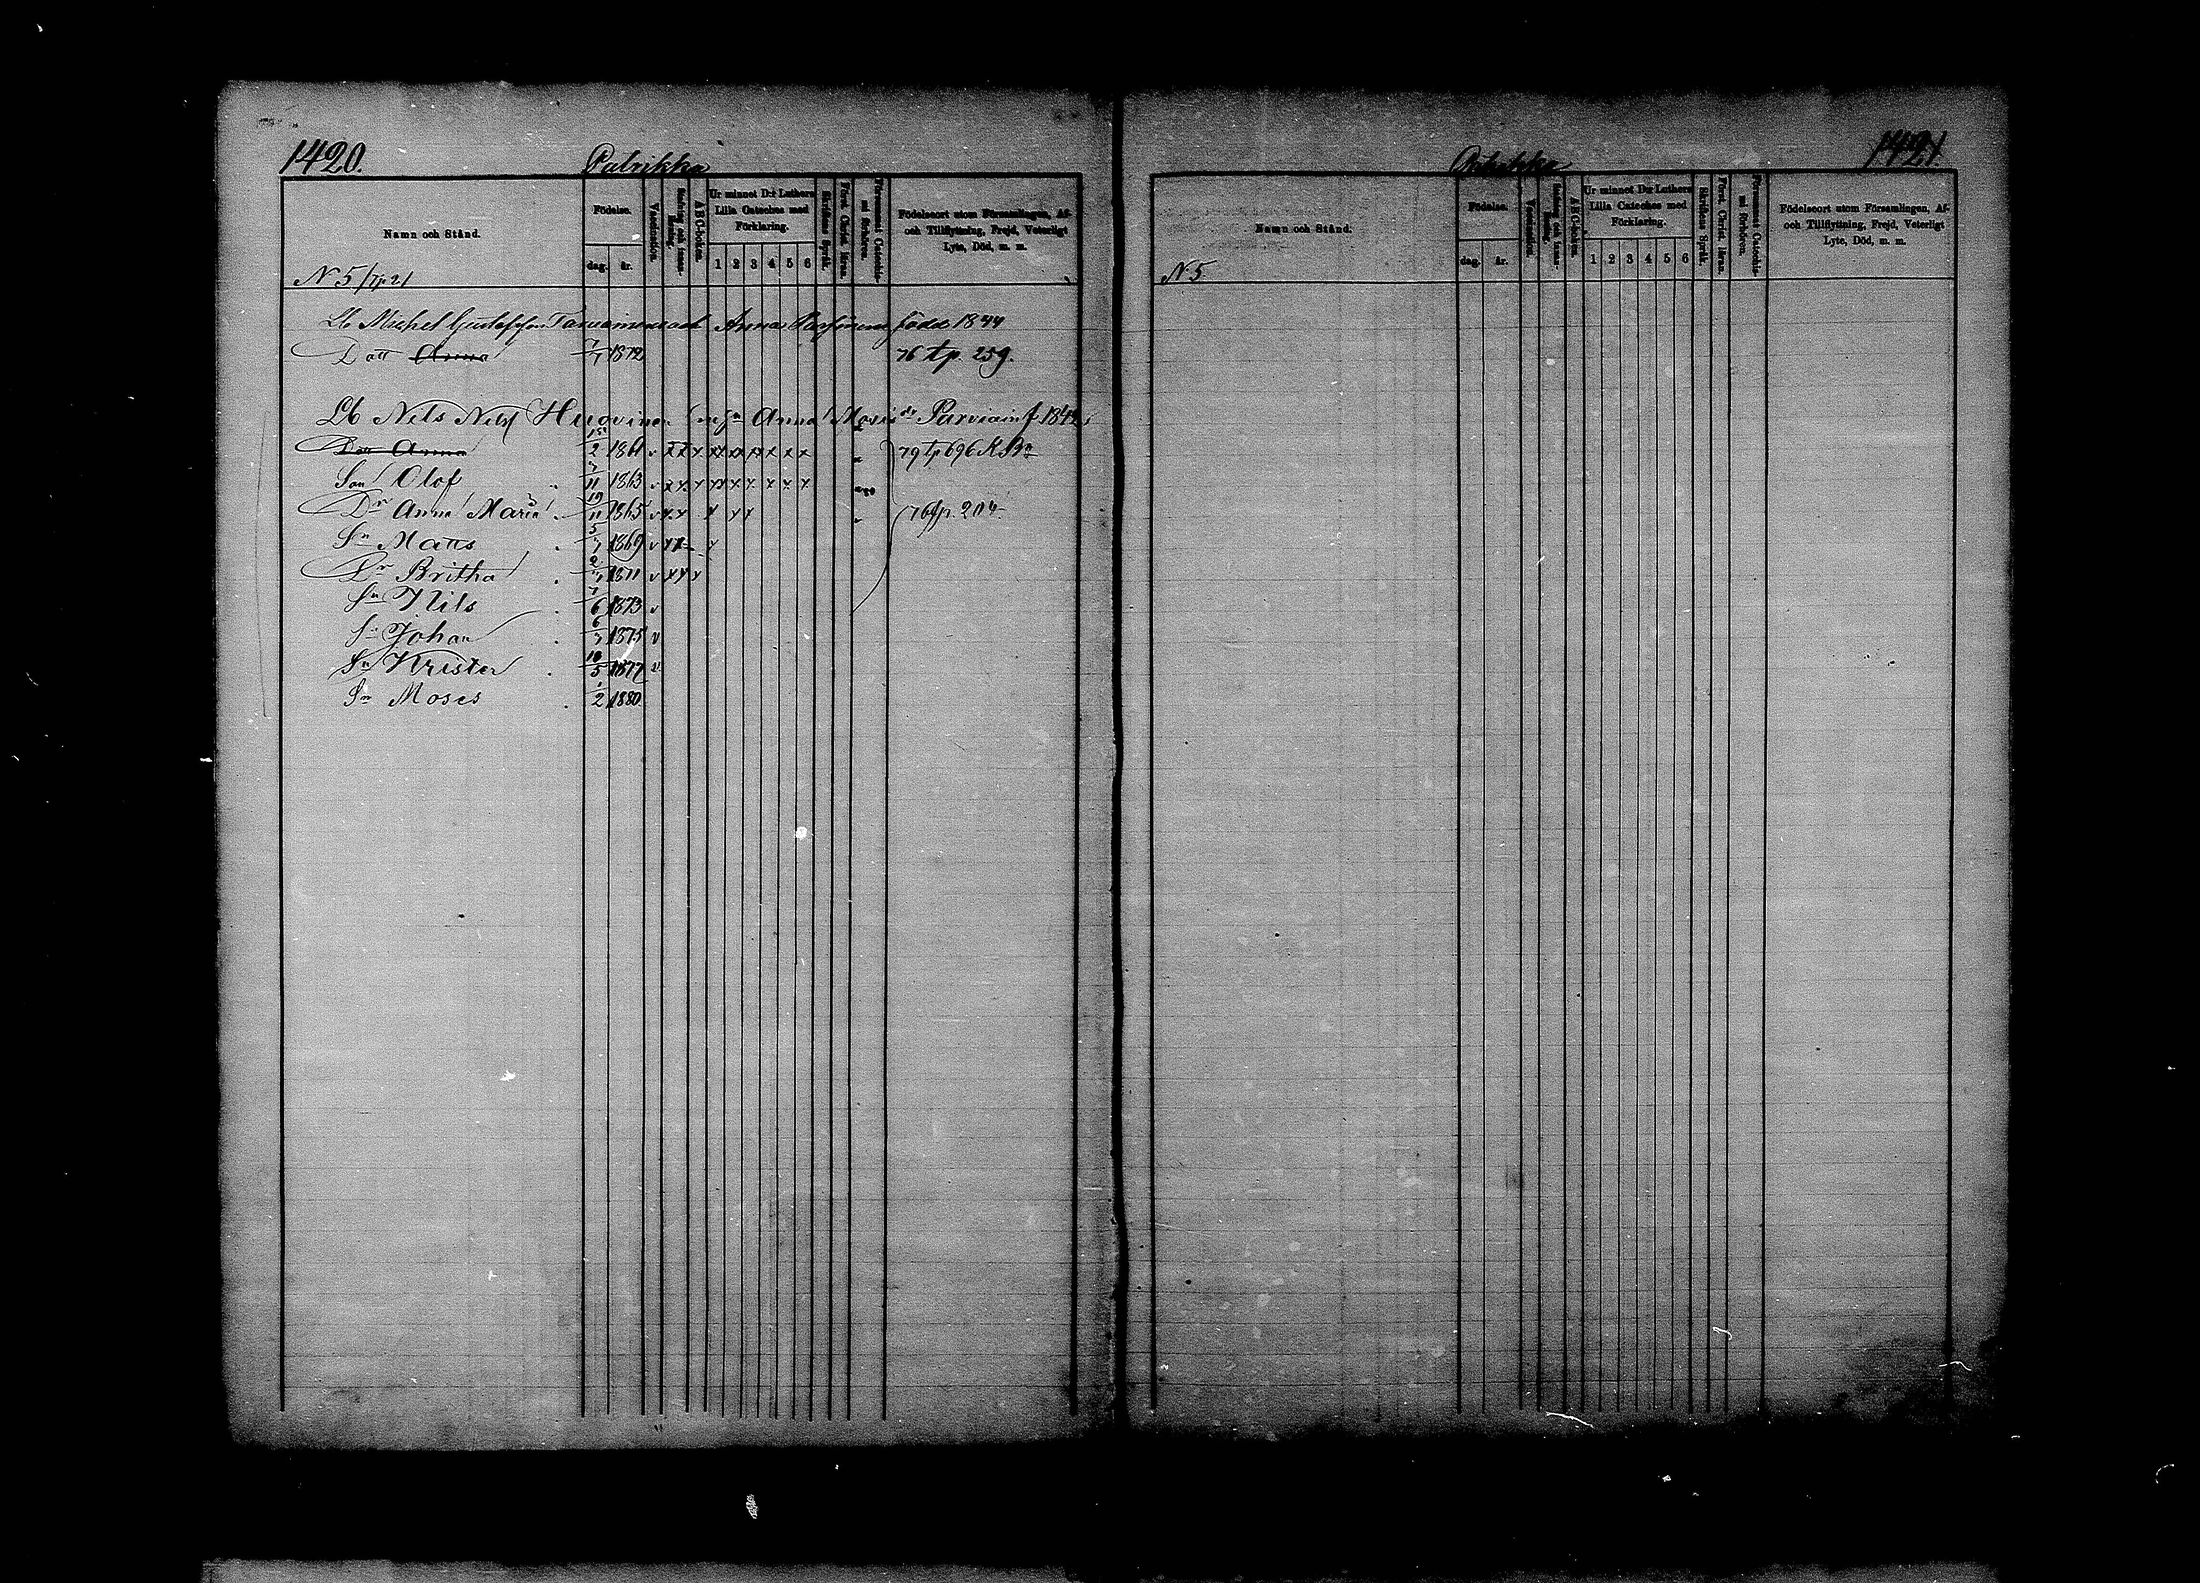 1420.
Patrikka
Namn och Stånd.
Födelse.
dag. år.
Vaccination.
A B C-boken.
Ur minnet D:r Luthers Lilla Cateches med Förklaring.
1 2 3 4 5 6
Skriftens Språk.
Först. Christ. läran.
Födelseort utom Församlingen, Af- och Tillflyttning, Frejd, Veterligt Lyte, Död, m. m.
N 5 /tp 21
Lb Michel Anna född 1844
Dott Anna 1/7 1872 76 tp. 259.
Lb Nils Anna f 1842
Dott Anna 15/2 1861 v 79 tp 696 K
Son Olof 7/11 1863 v
Dr Anna Maria 19/11 1865 v 76 tp. 204
Sn Matts 5/7 1869 v
Dr Britha 2/7 1871 v
Sn Nils 7/6 1873 v
Sn Johan 6/7 1875 v
Sn Krister 10/5 1877 v
Sn Moses 1/2 1880
1421
Namn och Stånd.
Födelse.
dag. år.
Vaccination.
A B C-boken.
Ur minnet D:r Luthers Lilla Cateches med Förklaring.
1 2 3 4 5 6
Skriftens Språk.
Först. Christ. läran.
Födelseort utom Församlingen, Af- och Tillflyttning, Frejd, Veterligt Lyte, Död, m. m.
N 5